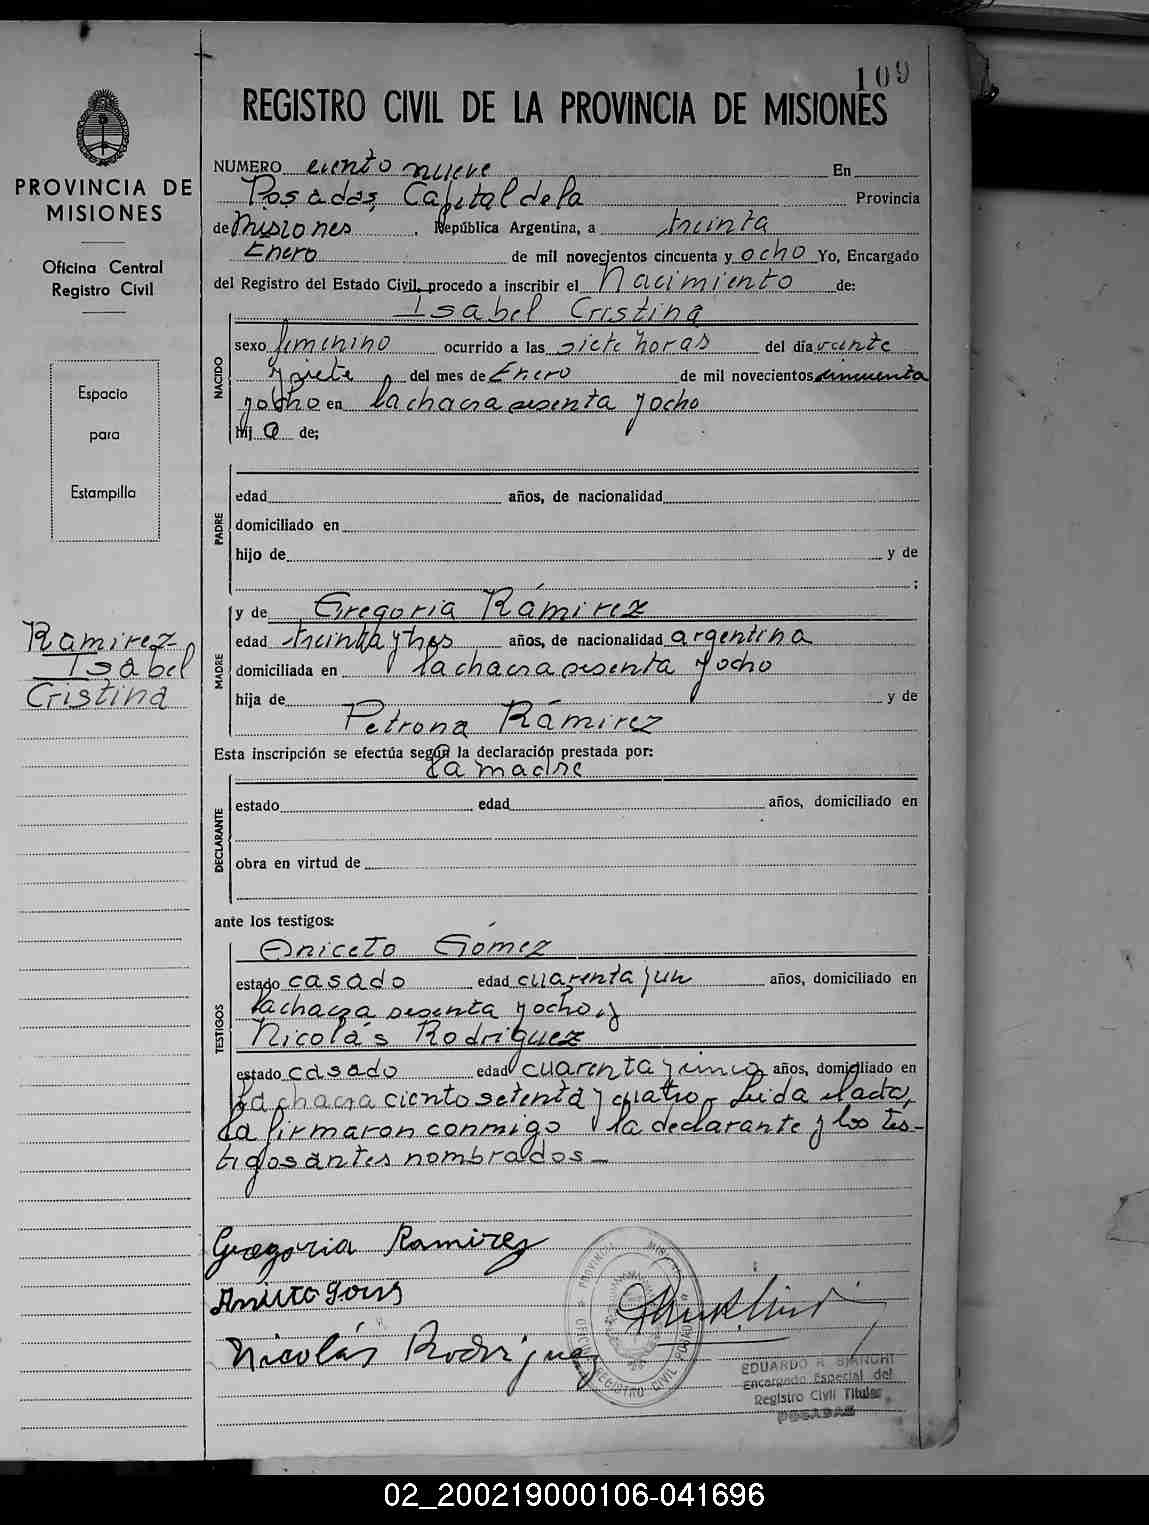 109
REGISTRO CIVIL DE LA PROVINCIA DE MISIONES
PROVINCIA DE
MISIONES
Oficina Central
Registro Civil
Espacio
para
Estampilla
Ramirez
Isabel
Cristina
NUMERO ciento nueve En
Posadas, Capital de la Provincia
de Misiones. República Argentina, a treinta
Enero de mil novecientos cincuenta y ocho Yo, Encargado
del Registro del Estado Civil, procedo a inscribir el Nacimiento de:
Isabel Cristina
NACIDO
sexo femenino ocurrido a las siete horas del día veinte
y siete del mes de Enero de mil novecientos cincuenta
y ocho en la chacra sesenta y ocho
hij a de;
PADRE
edad años, de nacionalidad
domiciliado en
hijo de y de
;
MADRE
y de Gregoria Rámirez
edad treinta y tres años, de nacionalidad argentina
domiciliada en la chacra sesenta y ocho
hija de y de
Petrona Rámirez
Esta inscripción se efectúa según la declaración prestada por:
la madre
DECLARANTE
estado edad años, domiciliado en
obra en virtud de
ante los testigos:
TESTIGOS
Aniceto Gómez
estado casado edad cuarenta y un años, domiciliado en
la chacra sesenta y ocho, y
Nicolás Rodriguez
estado casado edad cuarenta y cinco años, domiciliado en
la chacra ciento setenta y cuatro. Leida el acta,
la firmaron conmigo la declarante y los tes-
tigos antes nombrados.-
Gregoria Ramirez
Nicolás Rodriguez
PROVINCIA MISIONES
OFICINA REGISTRO CIVIL POSADAS
EDUARDO R. BIANCHI
Encargado Especial del
Registro Civil Titular
POSADAS
02_200219000106-041696